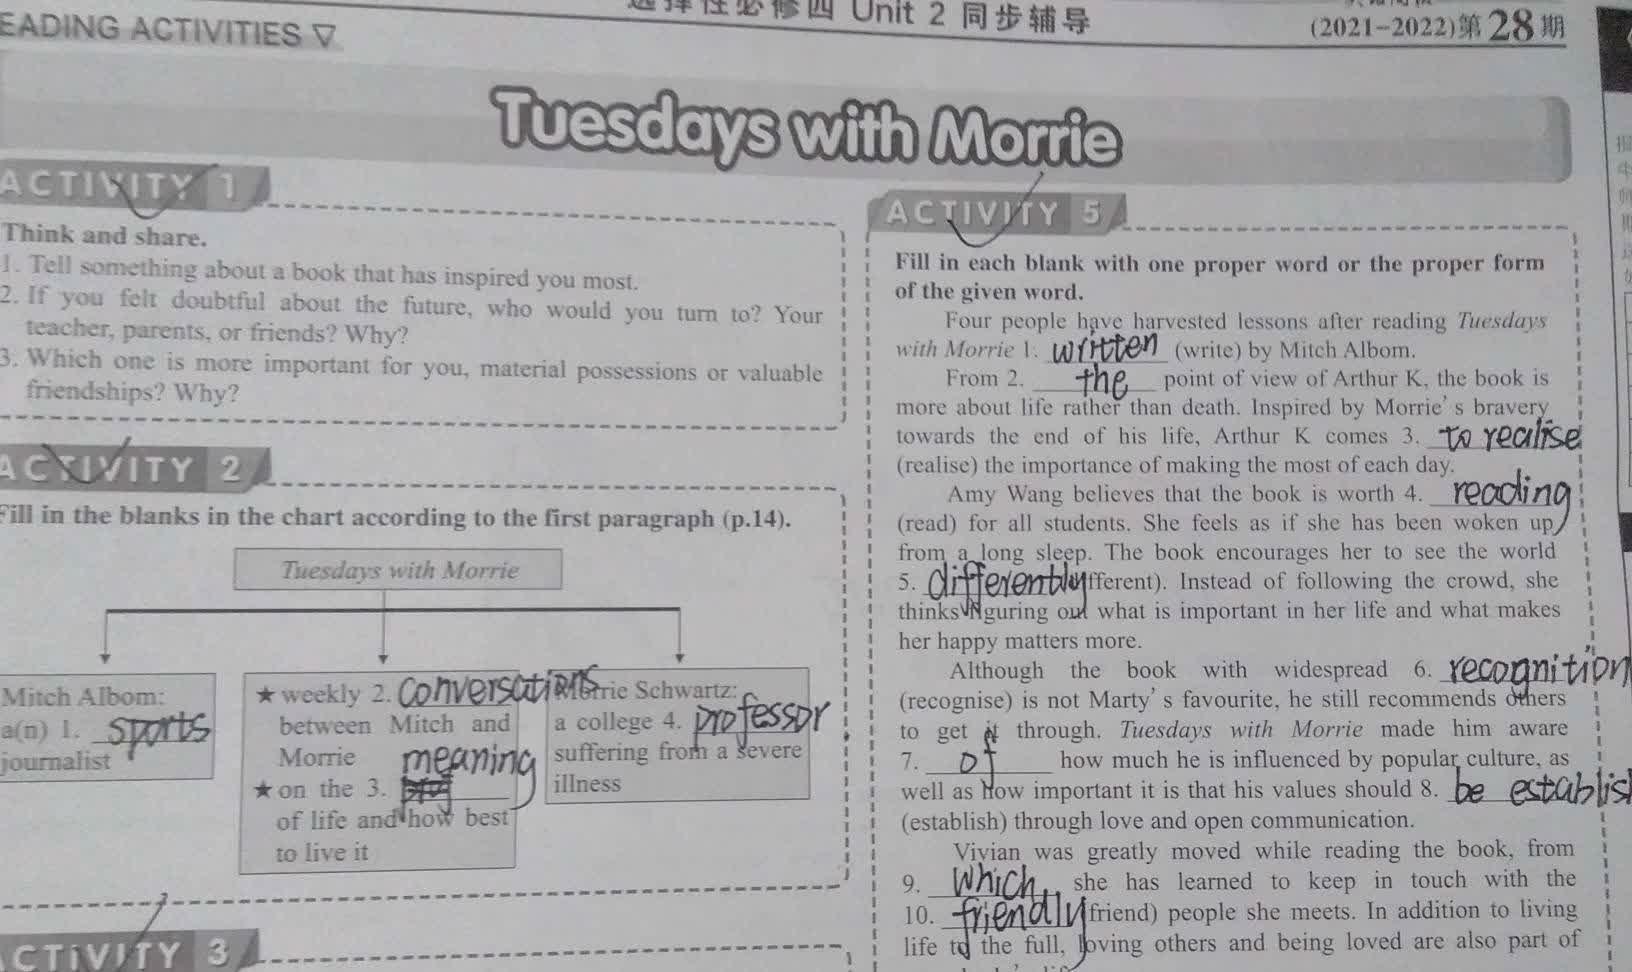 EADING ACTIVITIES ▽
选择性必修四 Unit 2 同步辅导
(2021-2022)第28期
Tuesdays with Morrie
ACTIVITY 1
Think and share.
1. Tell something about a book that has inspired you most.
2. If you felt doubtful about the future, who would you turn to? Your
teacher, parents, or friends? Why?
3. Which one is more important for you, material possessions or valuable
friendships? Why?
ACTIVITY 2
Fill in the blanks in the chart according to the first paragraph (p.14).
Tuesdays with Morrie
Mitch Albom:
a(n) 1. sports
journalist
★ weekly 2. conversations
between Mitch and
Morrie
meaning
★ on the 3.
of life and how best
to live it
Morrie Schwartz:
a college 4. professor
suffering from a severe
illness
ACTIVITY 3
ACTIVITY 5
Fill in each blank with one proper word or the proper form
of the given word.
Four people have harvested lessons after reading Tuesdays
with Morrie 1. written (write) by Mitch Albom.
From 2. the point of view of Arthur K, the book is
more about life rather than death. Inspired by Morrie's bravery
towards the end of his life, Arthur K comes 3. to realise
(realise) the importance of making the most of each day.
Amy Wang believes that the book is worth 4. reading
(read) for all students. She feels as if she has been woken up
from a long sleep. The book encourages her to see the world
5. differently fferent). Instead of following the crowd, she
thinks guring out what is important in her life and what makes
her happy matters more.
Although the book with widespread 6. recognition
(recognise) is not Marty's favourite, he still recommends others
to get it through. Tuesdays with Morrie made him aware
7. of how much he is influenced by popular culture, as
well as how important it is that his values should 8. be establis
(establish) through love and open communication.
Vivian was greatly moved while reading the book, from
9. which she has learned to keep in touch with the
10. friendly friend) people she meets. In addition to living
life to the full, loving others and being loved are also part of